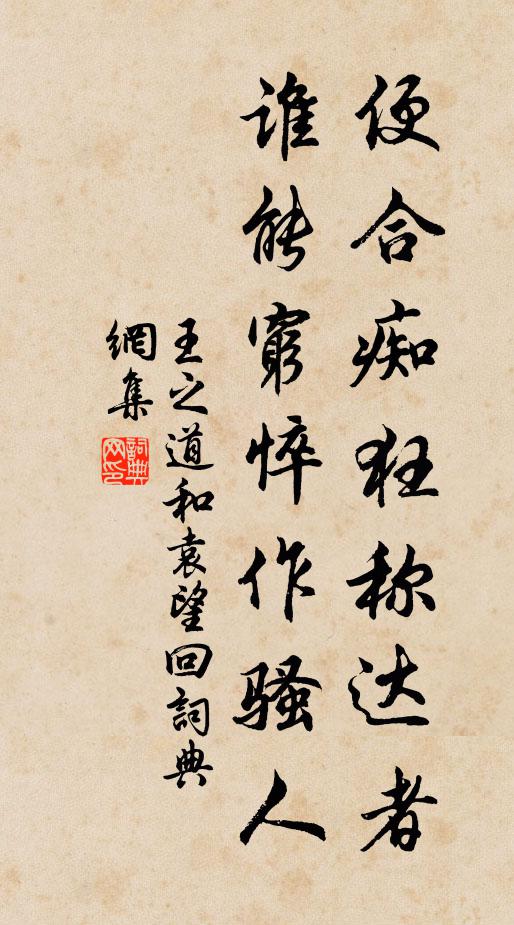 便合痴狂称达者
谁能窮悴作骚人
王之道和袁望回詞典
網集
詞典
网印